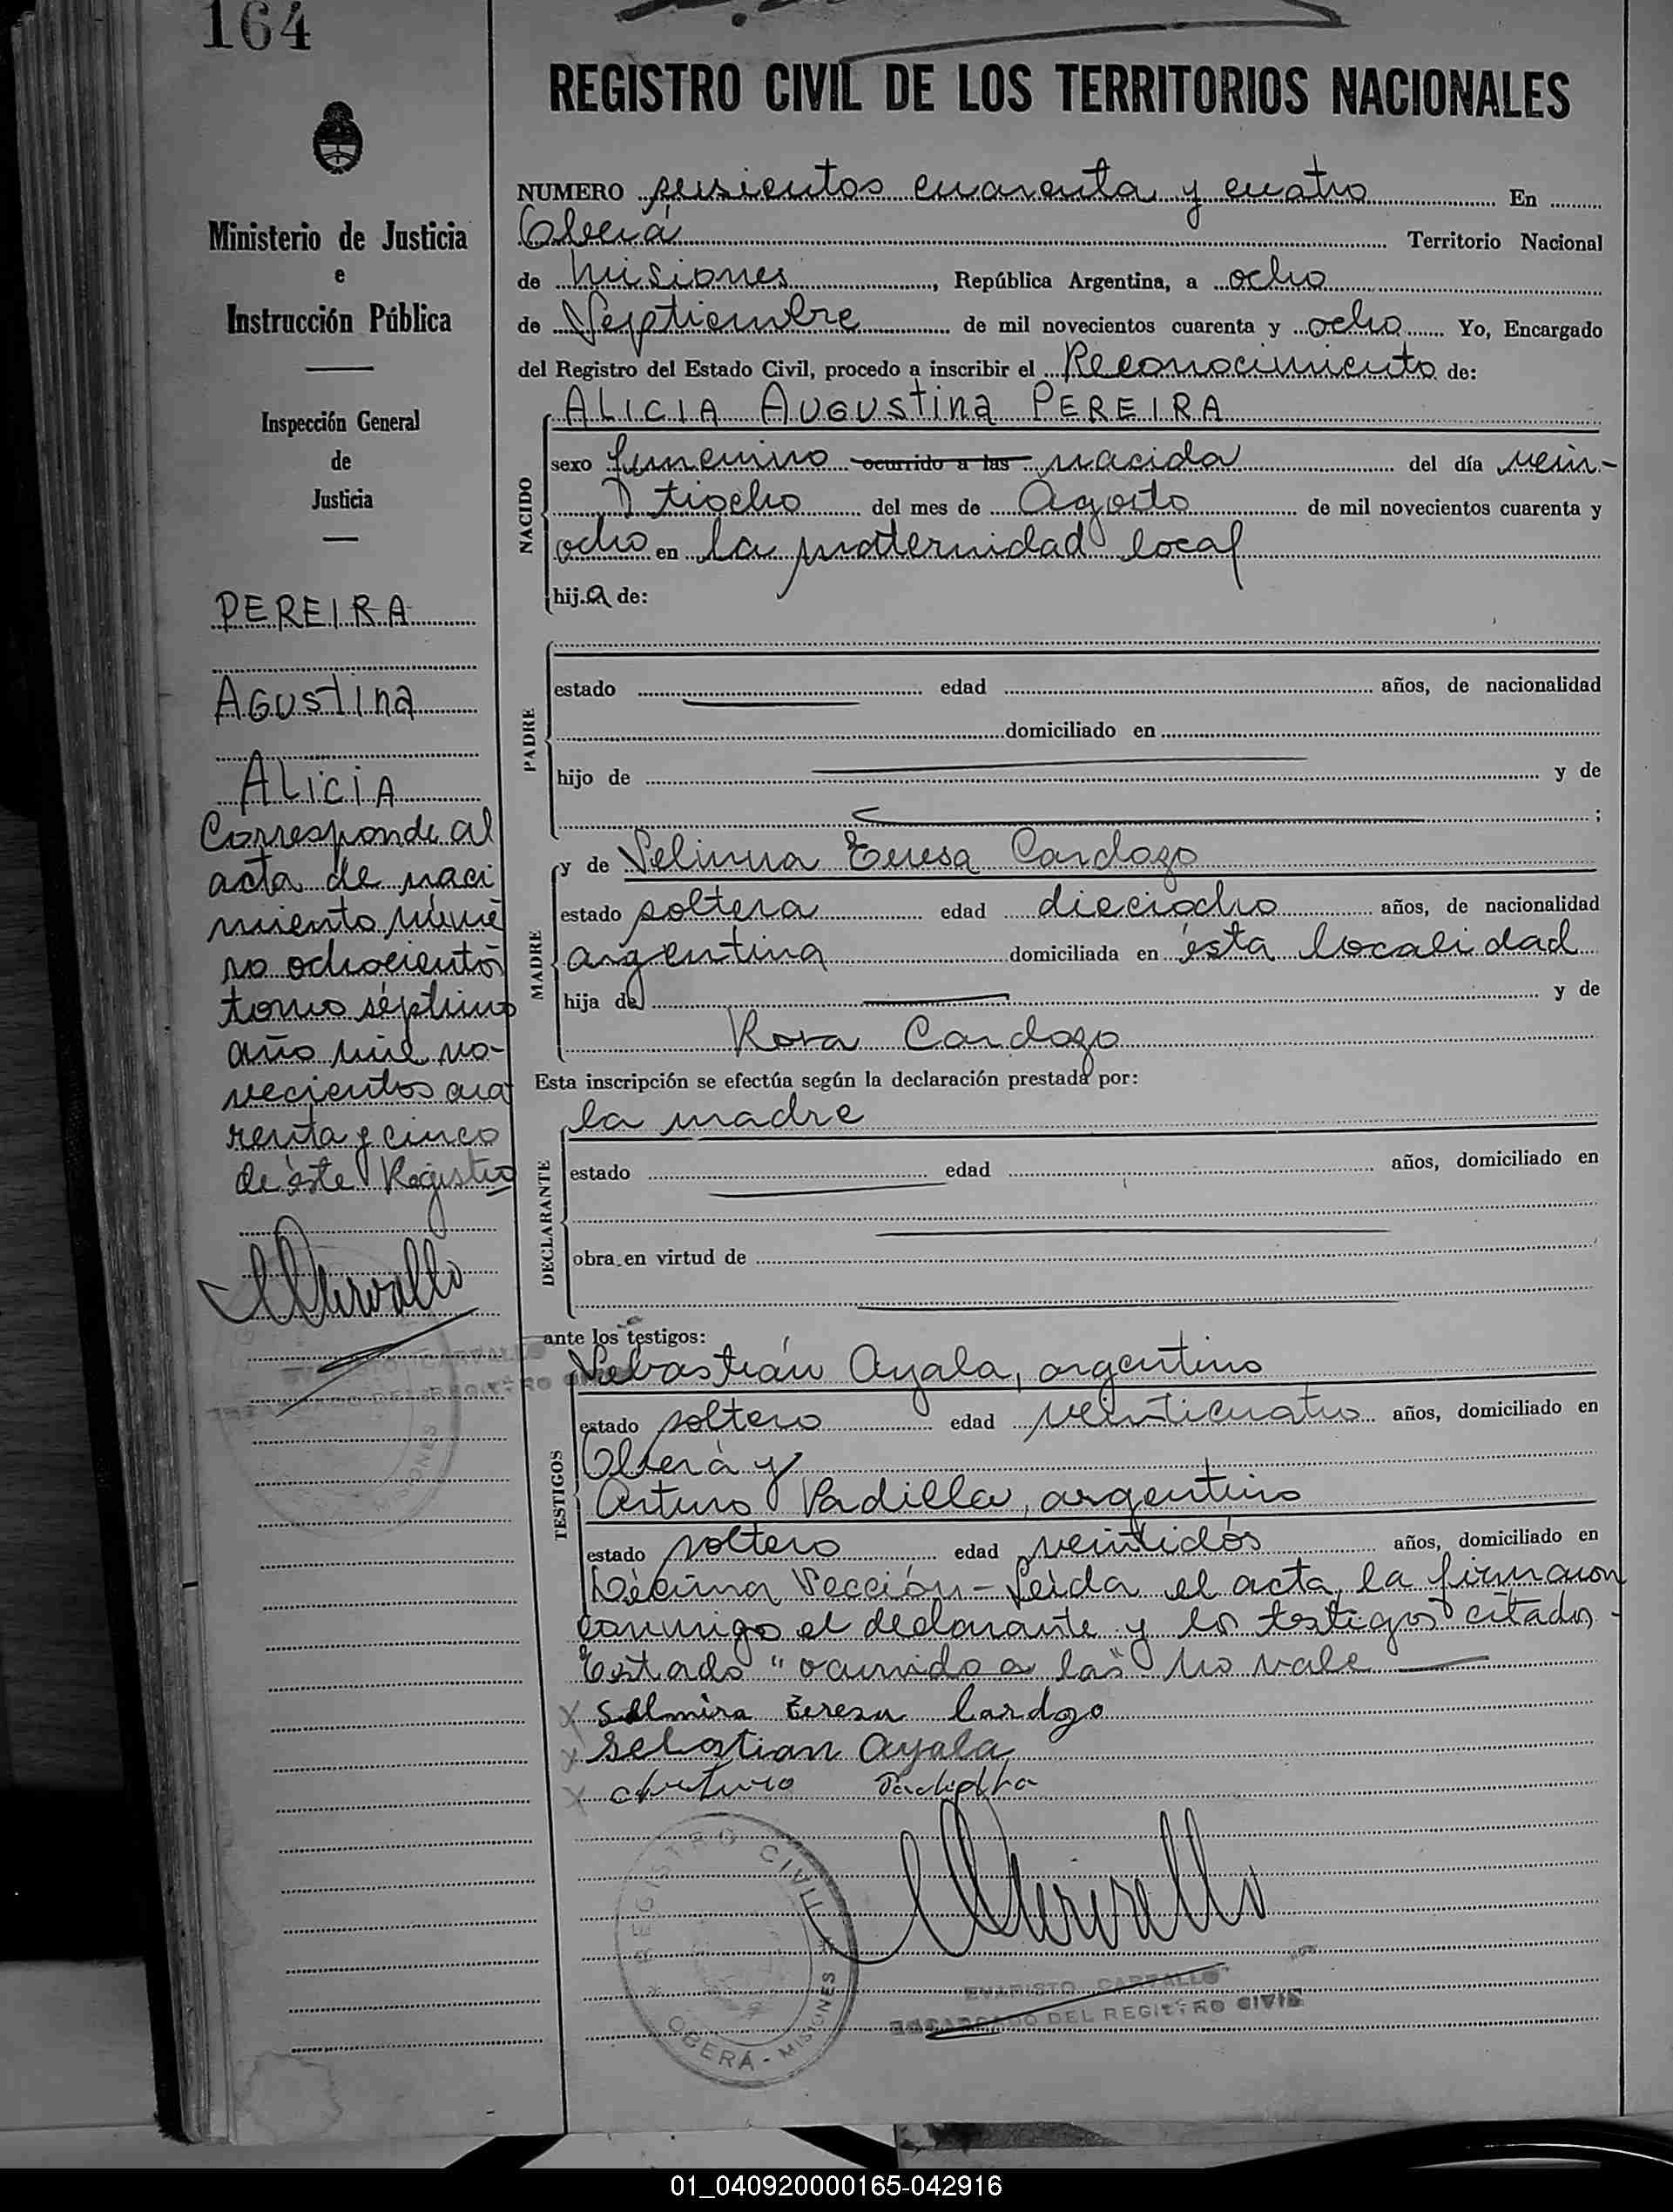 164
REGISTRO CIVIL DE LOS TERRITORIOS NACIONALES
Ministerio de Justicia
e
Instrucción Pública
Inspección General
de
Justicia
PEREIRA
Agustina
Alicia
Corresponde al
acta de naci
miento núme
ro ochocientos
tomo séptimo
año mil no-
vecientos cua
renta y cinco
de éste Registro
NUMERO seisientos cuarenta y cuatro En
Oberá Territorio Nacional
de Misiones, República Argentina, a ocho
de Septiembre de mil novecientos cuarenta y ocho Yo, Encargado
del Registro del Estado Civil, procedo a inscribir el Reconocimiento de:
ALICIA AUGUSTINA PEREIRA
NACIDO
sexo femenino ocurrido a las nacida del día vein-
tiocho del mes de Agosto de mil novecientos cuarenta y
ocho en la maternidad local
hija de:
PADRE
estado edad años, de nacionalidad
domiciliado en
hijo de y de
;
MADRE
y de Selimra Teresa Cardozo
estado soltera edad dieciocho años, de nacionalidad
argentina domiciliada en ésta localidad
hija de y de
Rosa Cardozo
Esta inscripción se efectúa según la declaración prestada por:
la madre
DECLARANTE
estado edad años, domiciliado en
obra en virtud de
ante los testigos:
TESTIGOS
Sebastián Ayala, argentino
estado soltero edad veinticuatro años, domiciliado en
Oberá y
Arturo Padilla, argentino
estado soltero edad veintidós años, domiciliado en
Décima Sección - Leída el acta, la firmaron
conmigo el declarante y los testigos citados -
Testado "ocurrido a las" No vale
x Selmira Teresa Cardgo
x Sebastian Ayala
x Arturo Padilla
REGISTRO CIVIL
OBERÁ - MISIONES
EVARISTO CARVALLO
ENCARGADO DEL REGISTRO CIVIL
01_040920000165-042916